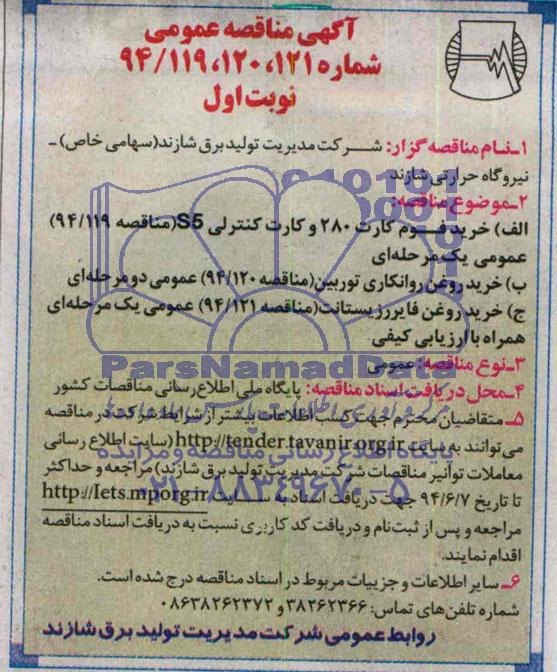 آگهی مناقصه عمومی
شماره ۱۲۱، ۱۲۰، ۹۴/۱۱۹
نوبت اول
۱ـ نـام مناقصه گزار: شـرکت مدیریت تولید برق شازند(سهامی خاص) ـ
نیروگاه حرارتی شازند
۲ـ موضوع مناقصه:
الف) خرید فـوم کارت ۲۸۰ و کارت کنترلی S5(مناقصه ۹۴/۱۱۹)
عمومی یک مرحله‌ای
ب) خرید روغن روانکاری توربین(مناقصه ۹۴/۱۲۰) عمومی دو مرحله‌ای
ج) خرید روغن فایررزیستانت(مناقصه ۹۴/۱۲۱) عمومی یک مرحله‌ای
همراه با ارزیابی کیفی
ParsNamadData
۳ـ نوع مناقصه: عمومی
۴ـ محل دریافت اسناد مناقصه: پایگاه ملی اطلاع رسانی مناقصات کشور
۵ـ متقاضیان محترم جهت کسب اطلاعات بیشتر از شرایط شرکت در مناقصه
می‌توانند به سایت http://tender.tavanir.org.ir (سایت اطلاع رسانی
پایگاه اطلاع رسانی مناقصه و مزایده
معاملات توانیر مناقصات شرکت مدیریت تولید برق شازند) مراجعه و حداکثر
۰۲۱-۸۸۳۴۹۶۷۰-۵
تا تاریخ ۹۴/۶/۷ جهت دریافت اسناد به سـایت http://Iets.mporg.ir
مراجعه و پس از ثبت‌نام و دریافت کد کاربری نسبت به دریافت اسناد مناقصه
اقدام نمایند.
۶ـ سایر اطلاعات و جزییات مربوط در اسناد مناقصه درج شده است.
شماره تلفن‌های تماس: ۳۸۲۶۲۳۶۶ و ۰۸۶۳۸۲۶۲۳۷۲
روابط عمومی شرکت مدیریت تولید برق شازند